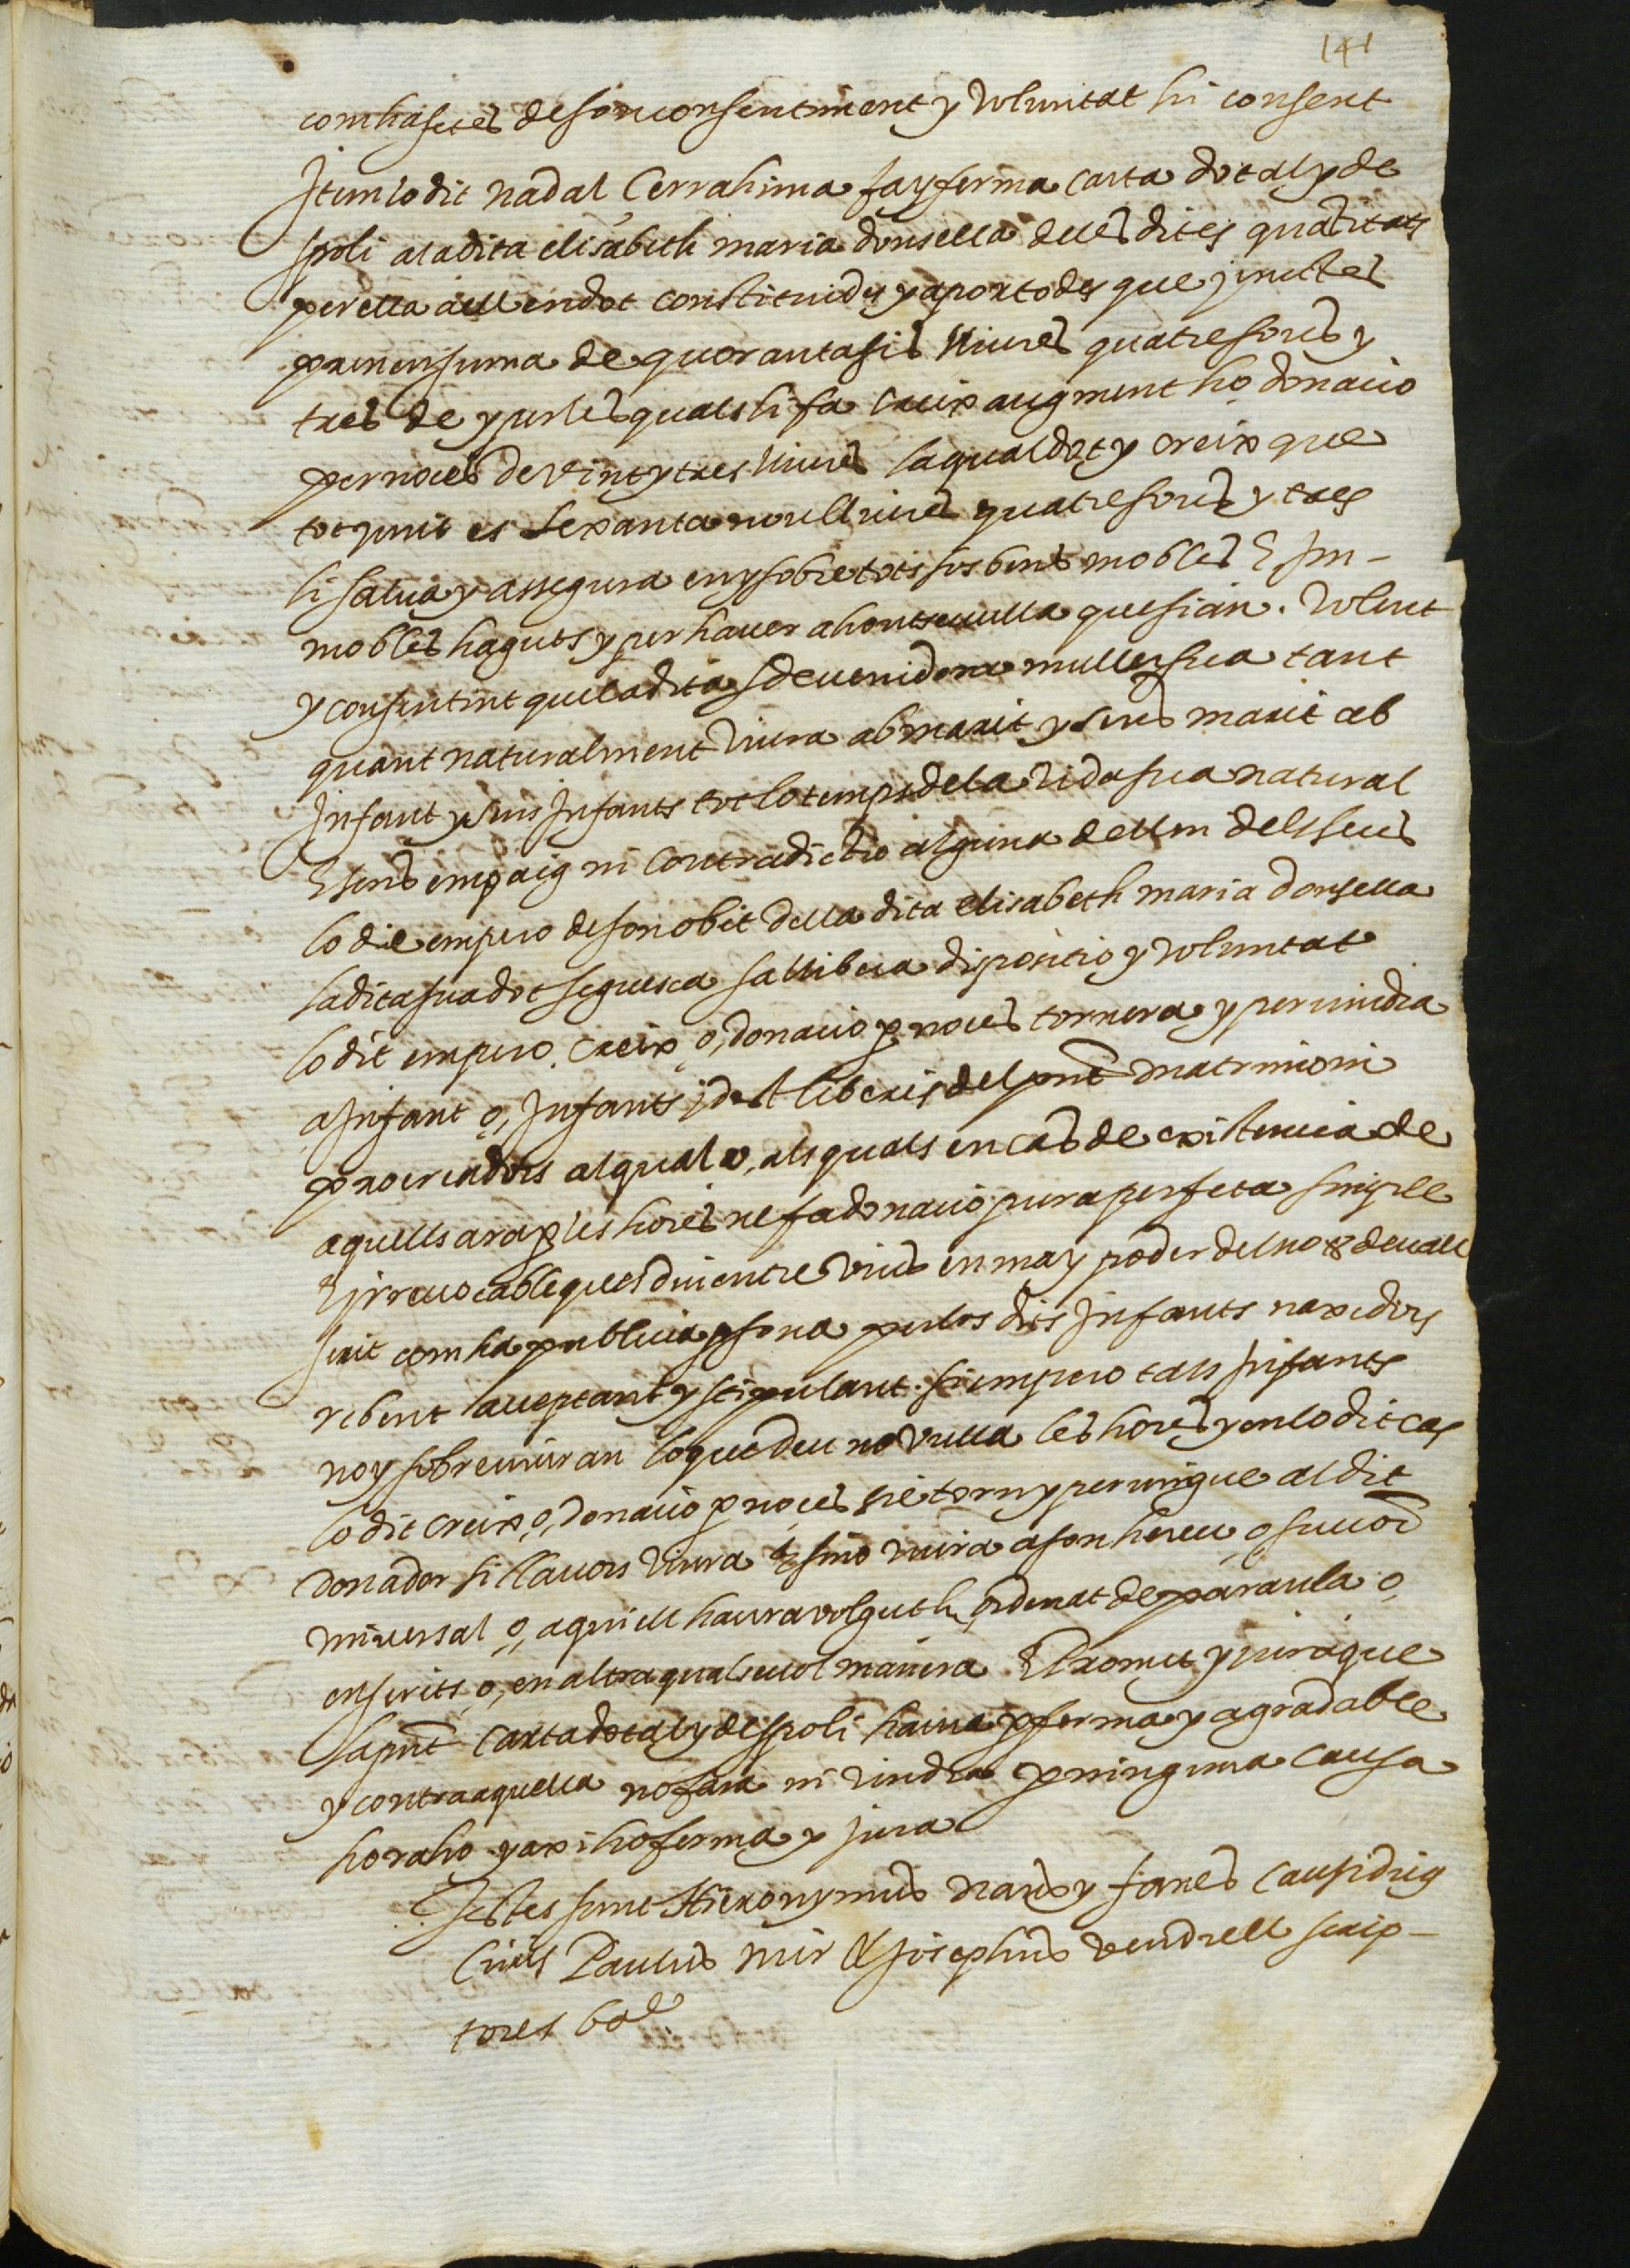 141
com ha fetes de son consentiment y voluntat hi consent
Item lo dit nadal Cerrahima fa y ferma carta dotal y de
spoli a la dita elisabeth maria donsella de les dites quantitats
per ella a ell en dot constituides y aportades que junctes
prenen suma de quoranta sis lliures quatre sous y
tres de y per les quals li fa creix augment ho donacio
per noces de vint y tres lliures la qual dot y creix que
tot junt es sexanta nou lliures quatre sous y tres
li salva y assegura en y sobre tots sos bens mobles E im-
mobles haguts y per haver ahont se vulla que sian. volent
y consentint que la dita sdevenidora muller sua tant
quant naturalment viura ab marit y sens marit ab
Infant y sens Infants tot lo temps de la vida sua natural
E sens empaig ni contradictio alguna dell ni dels seus
lo die empero de son obit de lla dita elisabeth maria donsella
la dita sua dot seguesca sa llibera dispositio y voluntat
lo dit empero creix o, donacio p noces tornera y pervindra
a Infant o, Infants jdest liberis del pnt matrimoni
procreadors al qual o, als quals en cas de existencia de
aquells ara p les hores ne fa donacio pura perfeta simple
E irrevocable ques diu entre vius en ma y poder del no.r devall
scrit com ha publica psona per los dits Infants naxedors
rebent acceptant y stipulant. si empero tals Infants
noy sobreviuran lo que deu no vulla les hores y en lo dit cas
lo dit creix o, donacio p noces sie torn y pervingue al dit
donador si llavors viura E sino viura a son hereu o succor
universal o, a qui ell haura volgut h ordenat de paraula o,
en scrits o, en altra qualsevol manera. E Promet y jura que
la pnt Carta dotal y de spoli haura p ferma y agradable
y contra aquella no fara ni vindra p ninguna causa
ho raho y axi ho ferma y jura
Testes sunt Hieronymus Navis y fones causidig
Civis Paulus mir & Josephus vendrell scrip-
tores